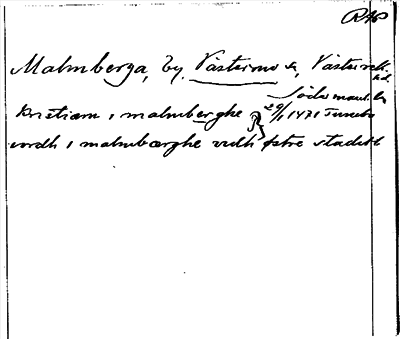 RAP
Malmberga, by, Västermo s., Västerrek.
hd.
Södermanl. ln
kristiærn i malmberghe 29/1 1471 Tuneby
vordh i malmbærghe vidh østre stadit